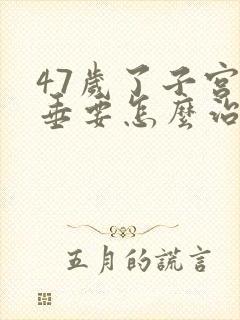 47歲了子宮
垂要怎麼治
五月的謊言